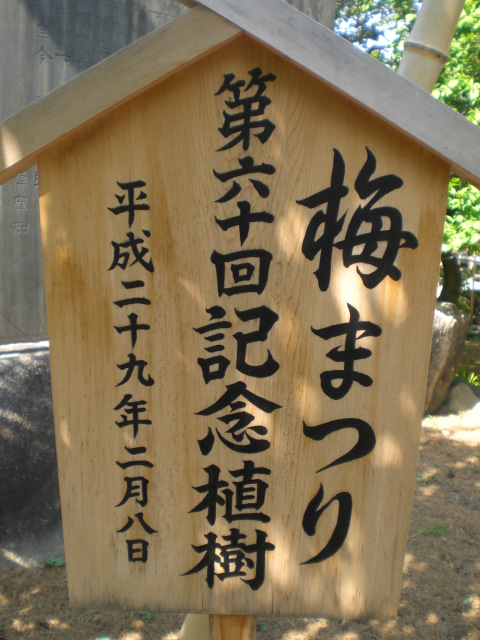 梅まつり
第六十回記念植樹
平成二十九年二月八日